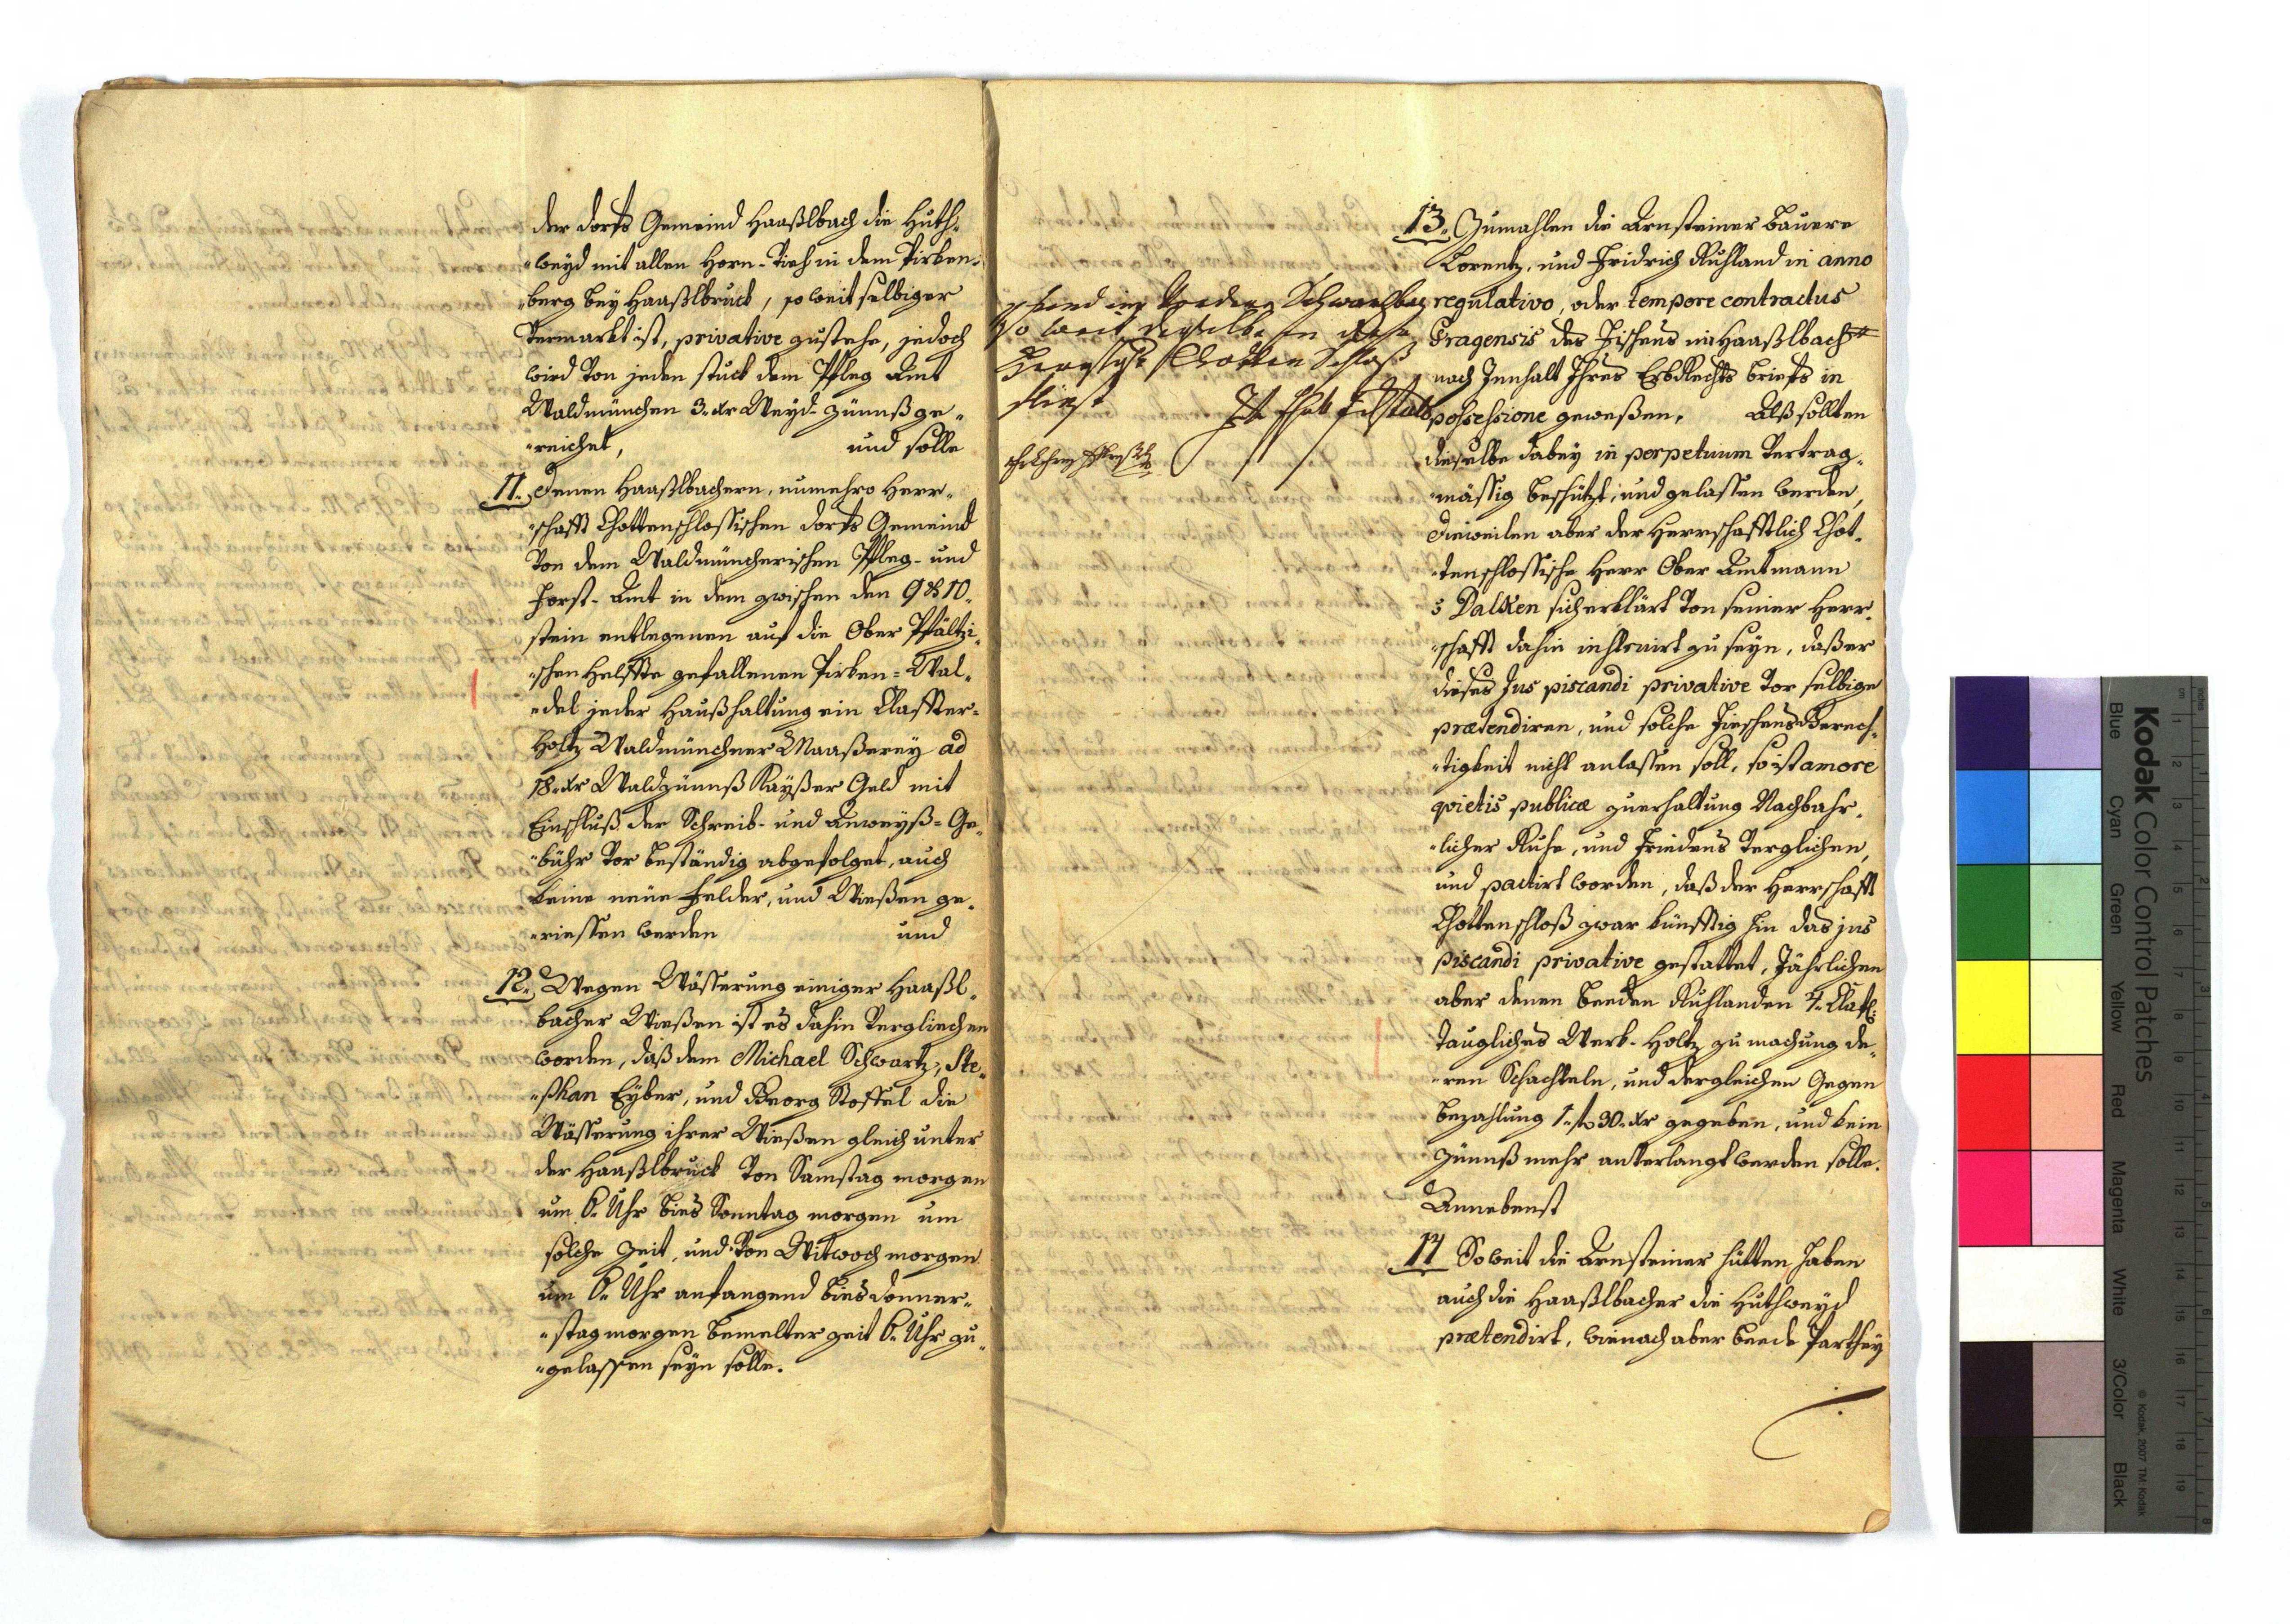 der dorfs Gemeind Haaßlbach die Huth-
weyd mit allen Horn-Vieh in dem Pirken-
berg bey Haaßlbruck, so weit selbiger
Vermarkt ist, privative zustehe, jedoch
wird von jeden stuck dem Pfleg Amt
Waldmünchen 3. xr Weyd-zünnß ge-
reichet, und solle
11. Denen Haaßlbachern, nunmehro Herr-
schafft Chottenschlossischen dorfs Gemeind
von dem Waldmüncherischen Pfleg- und
Forst-Amt in dem zwischen den 9 & 10.
stein entlegenen auf die Ober Pfältzi-
schen Helffte gefallenen Pirken-Wal-
del jeder Haußhaltung ein Claffter-
Holtz Waldmünchner Maaßerey ad
18. xr Waldzünnß Kayßer Geld mit
Einschluß der Schreib- und Anweyß-Ge-
bühr vor beständig abgefolget, auch
keine neüe Felder, und Wießen ge-
riessen werden und
12. Wegen Wässerung einiger Haaßl-
bacher Wießen ist es dahin Verglichen
worden, daß dem Michael Schwartz, Ste-
phan Eyber, und Georg Stoffel die
Wässerung ihrer Wießen gleich unter
der Haaßlbruck von Samstag morgen
um 6. Uhr bies Sonntag morgen um
solche Zeit, und von Mitwoch morgen
um 6. Uhr anfangend bies donner-
stag morgen bemelter Zeit 6. Uhr zu-
gelassen seyn solle.
13. Zumahlen die Arnsteiner Bauern
Lorentz, und Fridrich Ruhland in anno
regulativo, oder tempore contractus
Pragensis des Fischens im Haaßlbach
nach Innhalt Ihres Erb Rechts briefs in
possessione geweßen, Alß sollten
dieselbe dabey in perpetuum Vertrag-
mässig beschützt, und gelassen werden,
dieweilen aber der Herrschafftlich Chot-
tenschlossische Herr Ober Amtmann
Dalken sich erklärt von seiner Herr-
schafft dahin instruirt zu seyn, daß er
dieses Jus piscandi privative vor selbige
prætendiren, und solche Fieschens Berech-
tigkeit nicht anlassen soll, so ist amore
qvietis publicæ zu erhaltung Nachbahr-
licher Ruhe, und Friedens Verglichen,
und pactirt worden, daß der Herrschafft
Chottenschloß zwar künfftig hin das jus
piscandi privative gestattet, Jährlichen
aber denen beeden Ruhlanden 4. Claft:
taugliches Werk-Holtz zu machung de-
ren Schachteln, und dergleichen Gegen
bezahlung 1. fl 30. xr gegeben, und kein
Zünnß mehr anverlangt werden solle.
Annebenst
so weit derselbe in
Chotten Schloß
fliest
14 So weit die Arnsteiner hütten haben
auch die Haaßlbacher die Huthweyd
prætendirt, wienach aber beede Parthey